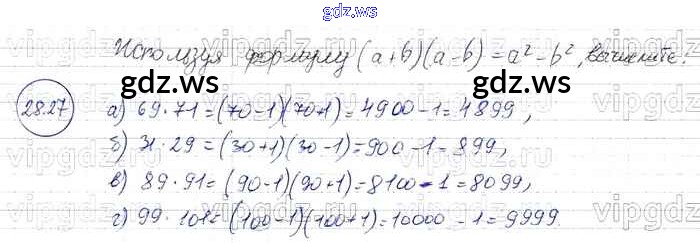 gdz.ws
Используя формулу (a+b)(a-b)=a²-b², вычислите:
gdz.ws gdz.ws
28.27 а) 69·71=(70-1)(70+1)=4900-1=4899,
б) 31·29=(30+1)(30-1)=900-1=899,
в) 89·91=(90-1)(90+1)=8100-1=8099,
г) 99·101=(100-1)(100+1)=10000-1=9999.
gdz.ws gdz.ws